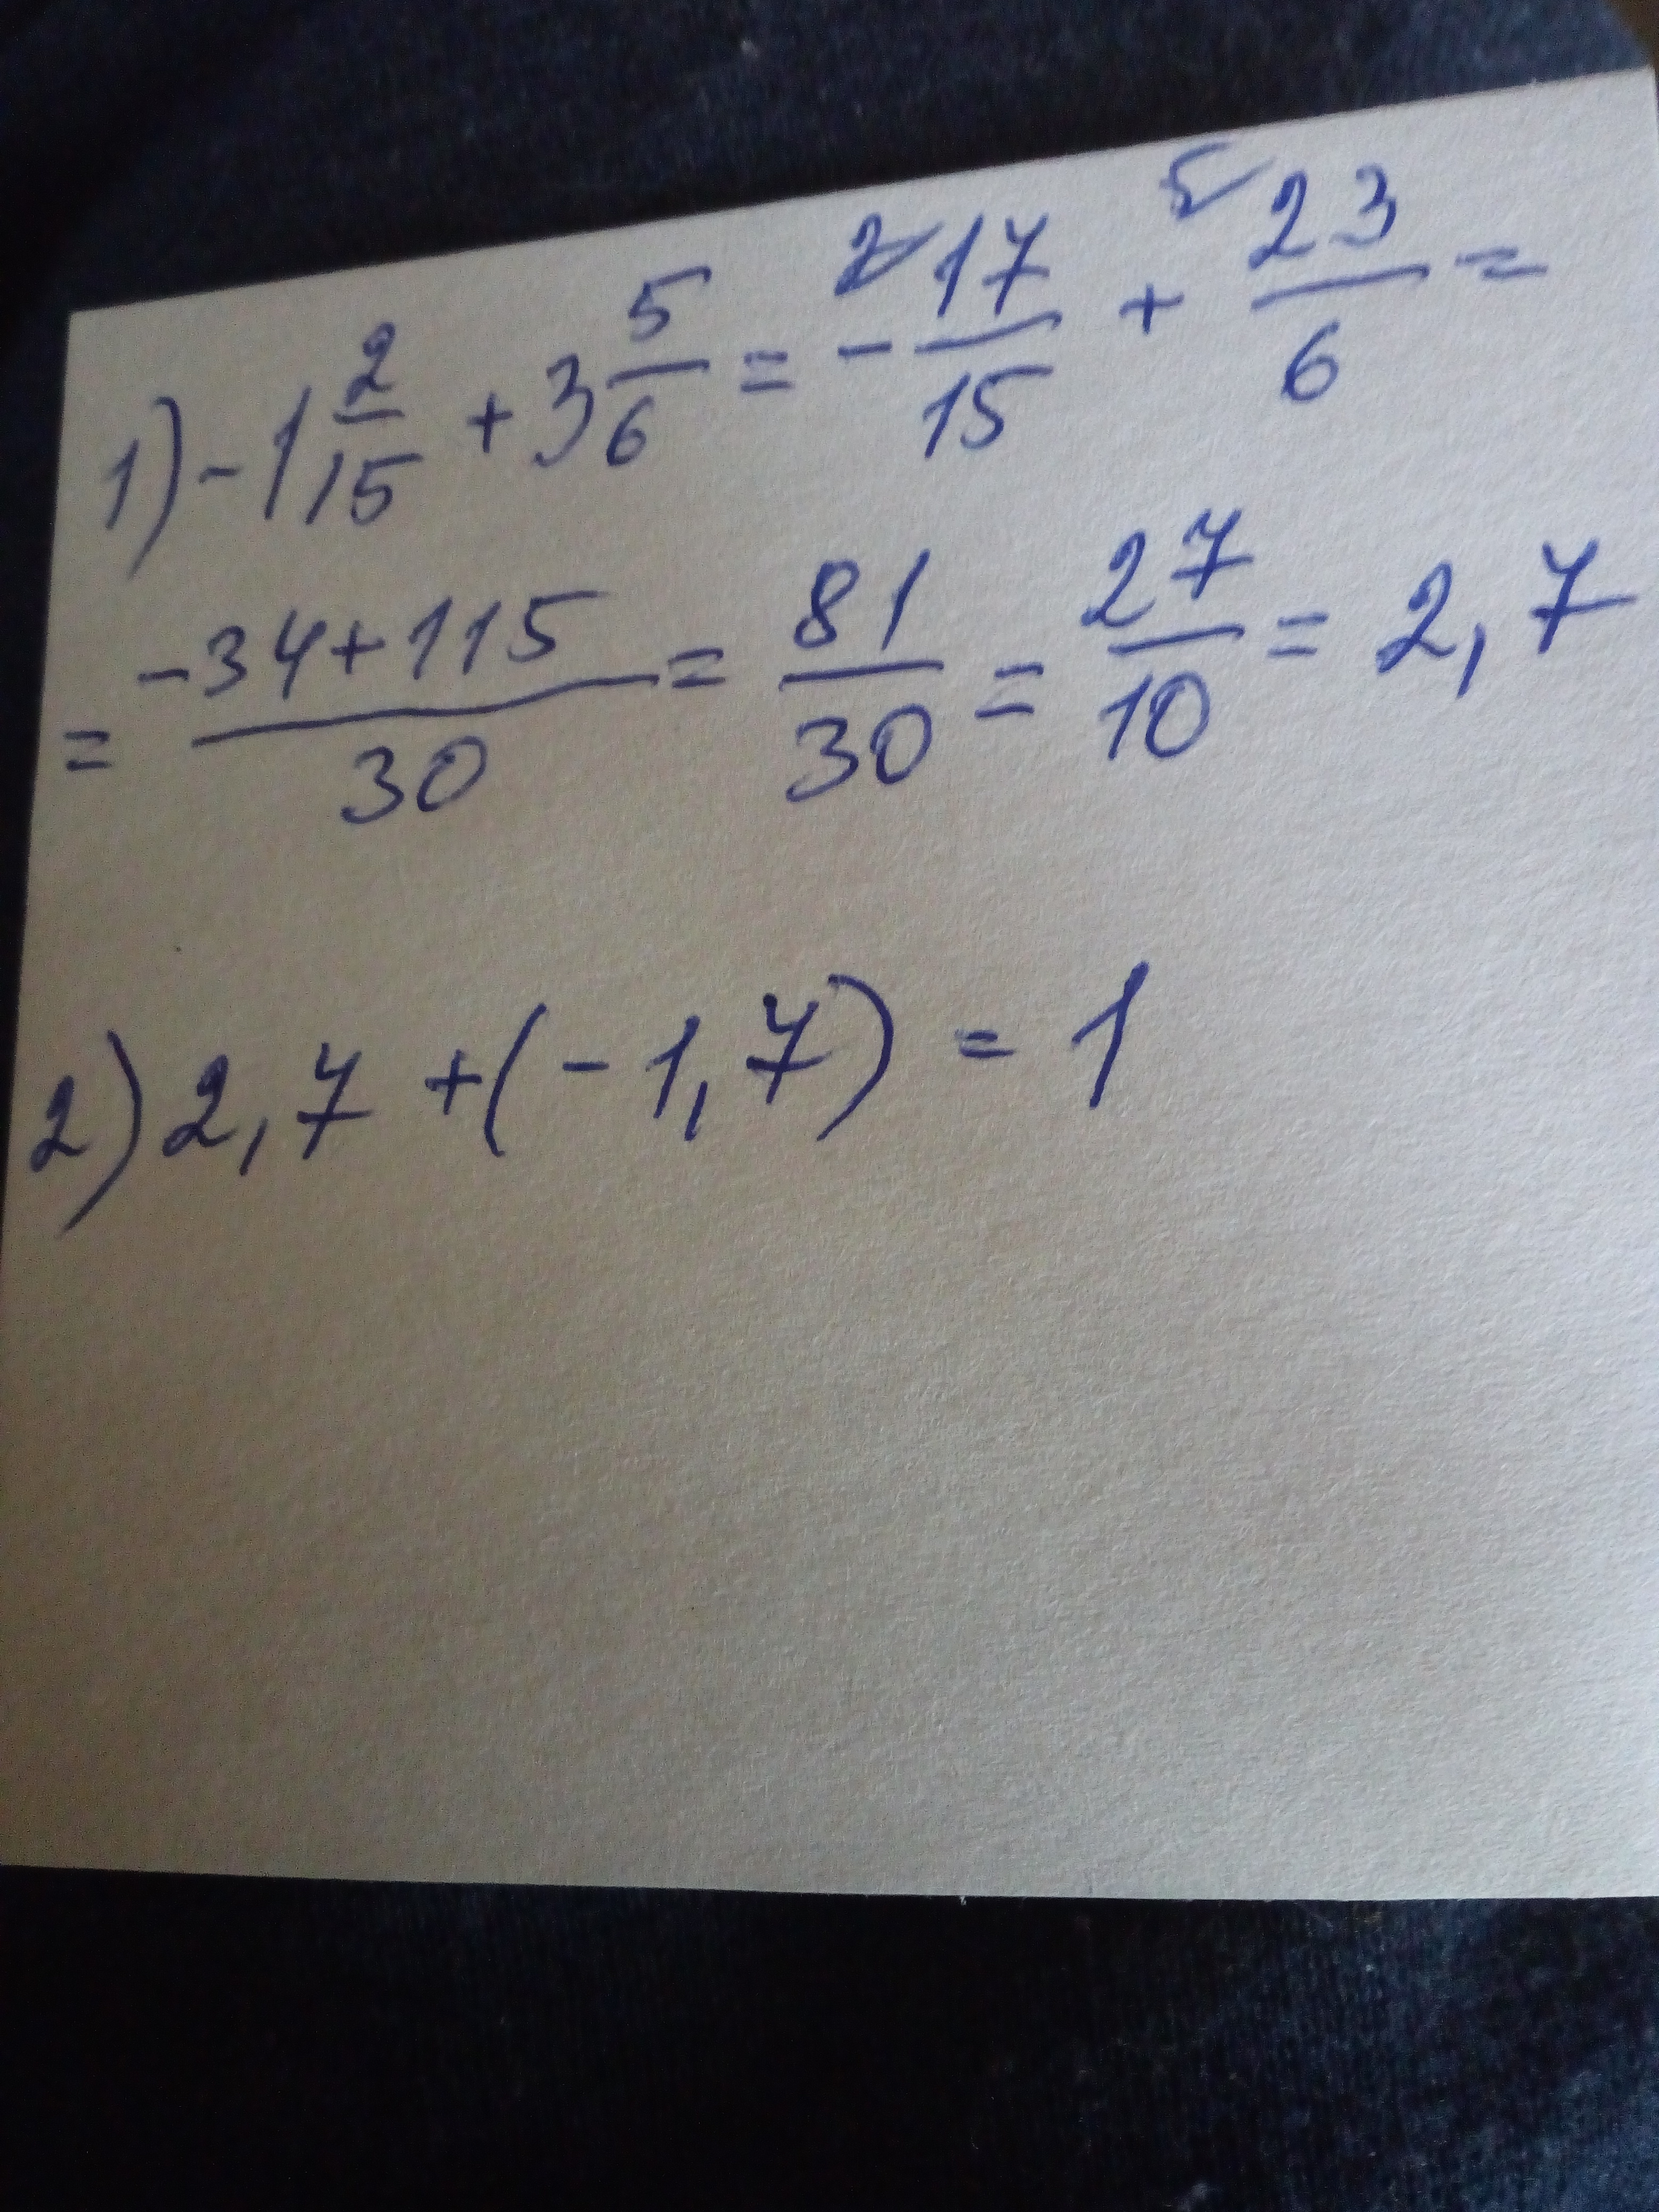 1) -1 2/15 + 3 5/6 = - 2 17/15 + 5 23/6 =
= -34+115/30 = 81/30 = 27/10 = 2,7
2) 2,7 + (-1,7) = 1